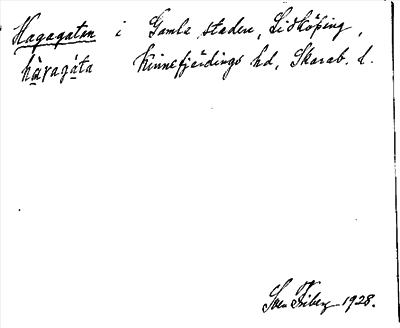 Hagagatan i Gamla staden, Lidköping,
hàragáta Kinnefjärdings hd, Skarab. l.
Sven Friberg 1928.